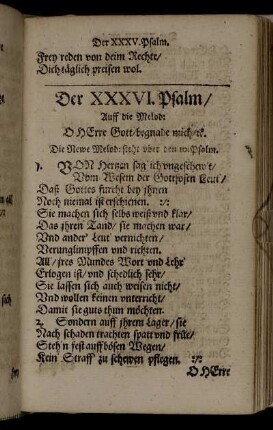 Der XXXV. Psalm.
Frey reden von deim Rechte/
Dich täglich preisen wol.
Der XXXVI. Psalm/
Auff die Melod:
O HErre Gott/ begnade mich/ ꝛc.
Die Newe Melod: steht vber den Psalm.
VON Hertzen sag ich ungeschewt/
Vom Wesen der Gottlosen Leut/
Daß Gottes furcht bey jhnen
Noch niemal ist erschienen. :/:
Sie machen sich selbs weiß und klar/
Das jhren Tand/ sie machen war/
Vnd ander Leut vernichten/
Verunglimpffen und richten.
All/ jres Mundes Wort und Lehr
Erlogen ist/ und schedlich sehr/
Sie lassen sich auch weisen nicht/
Und wollen keinen unterricht/
Damit sie guts thun möchten.
2. Sondern auff jhrem Lager/ sie
Nach schaden trachten spatt und früe/
Stehn fest auff bösen Wegen/
Kein Straff zu schewen pflegen. :/:
O HErre